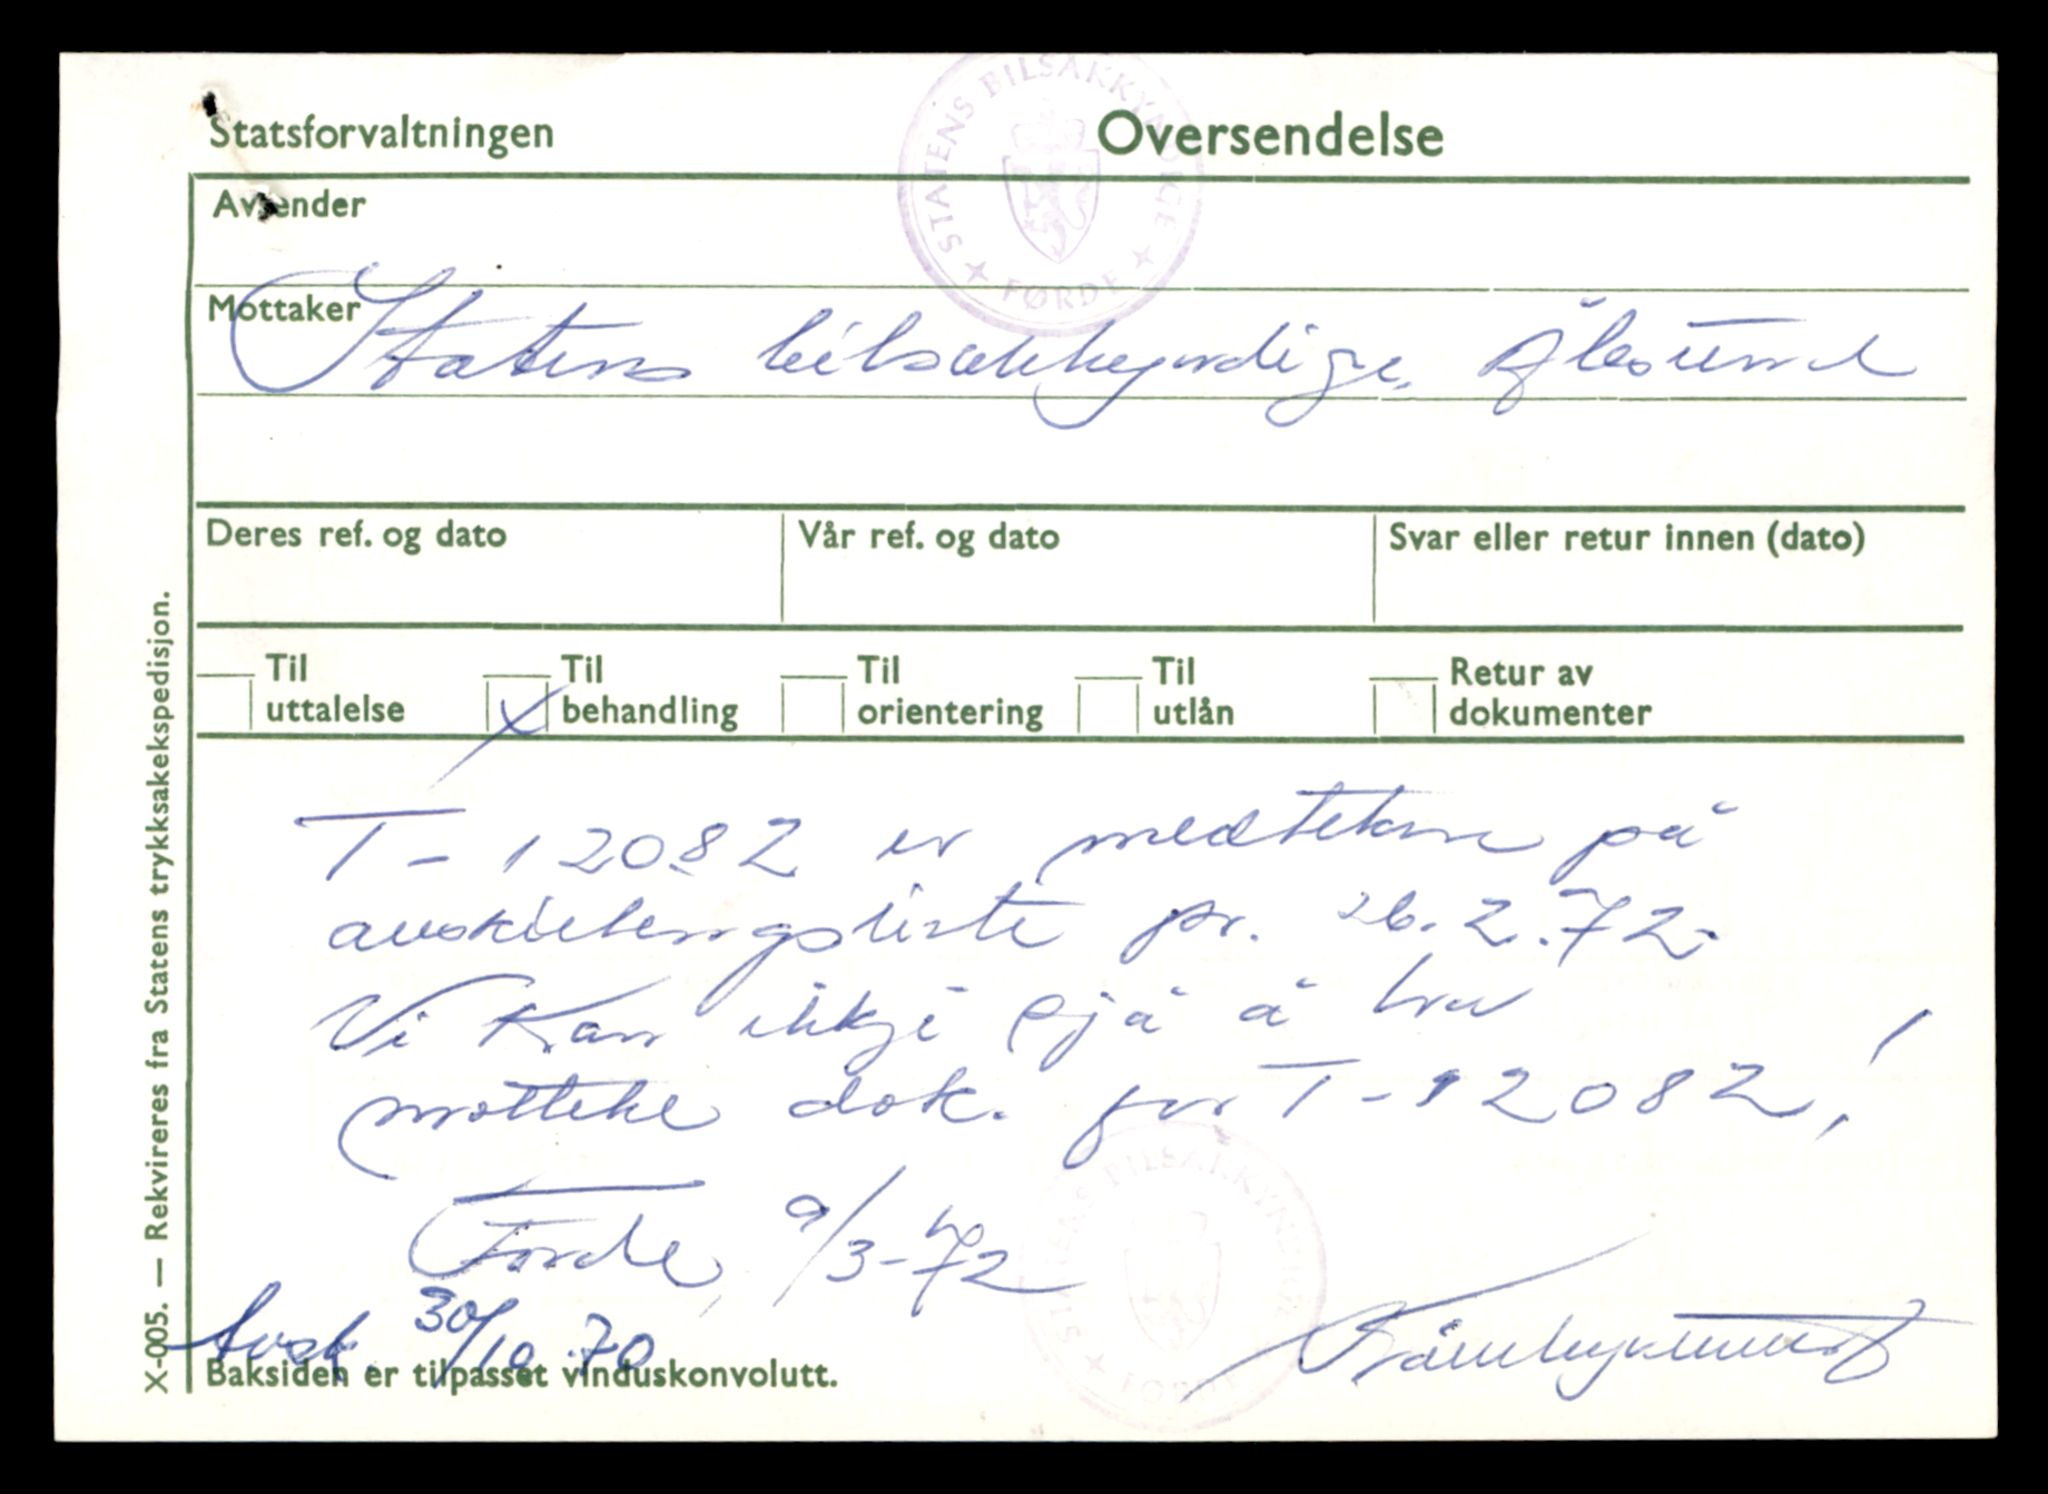 Statsforvaltningen
Oversendelse
STATENS BILSAKKYNDIGE
FØRDE
Avsender
Mottaker
Statens bilsakkyndige, Ålesund
Deres ref. og dato
Vår ref. og dato
Svar eller retur innen (dato)
Til uttalelse
Til behandling
Til orientering
Til utlån
Retur av dokumenter
T-12082 er medteken på
avskiltingsliste pr. 26.2.72.
Vi kan ikkje sjå å ha
motteke dok. for T-12082!
Førde, 9/3-72
STATENS BILSAKKYNDIGE
FØRDE
Avsk. 30/10.70
Baksiden er tilpasset vinduskonvolutt.
X-005. — Rekvireres fra Statens trykksakekspedisjon.